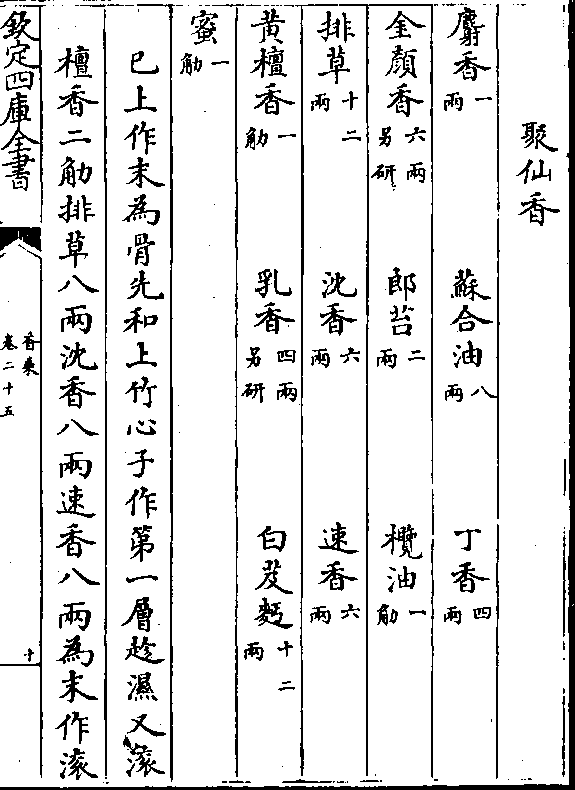 聚仙香
麝香一兩 蘇合油八兩 丁香四兩
金顏香六兩另研 郎苔二兩 欖油一觔
排草十二兩 沈香六兩 速香六兩
黃檀香一觔 乳香四兩另研 白芨麪十二兩
蜜一觔
已上作末為骨先和上竹心子作第一層趁濕又滾
檀香二觔排草八兩沈香八兩速香八兩為末作滾
欽定四庫全書
香乘
卷二十五
十